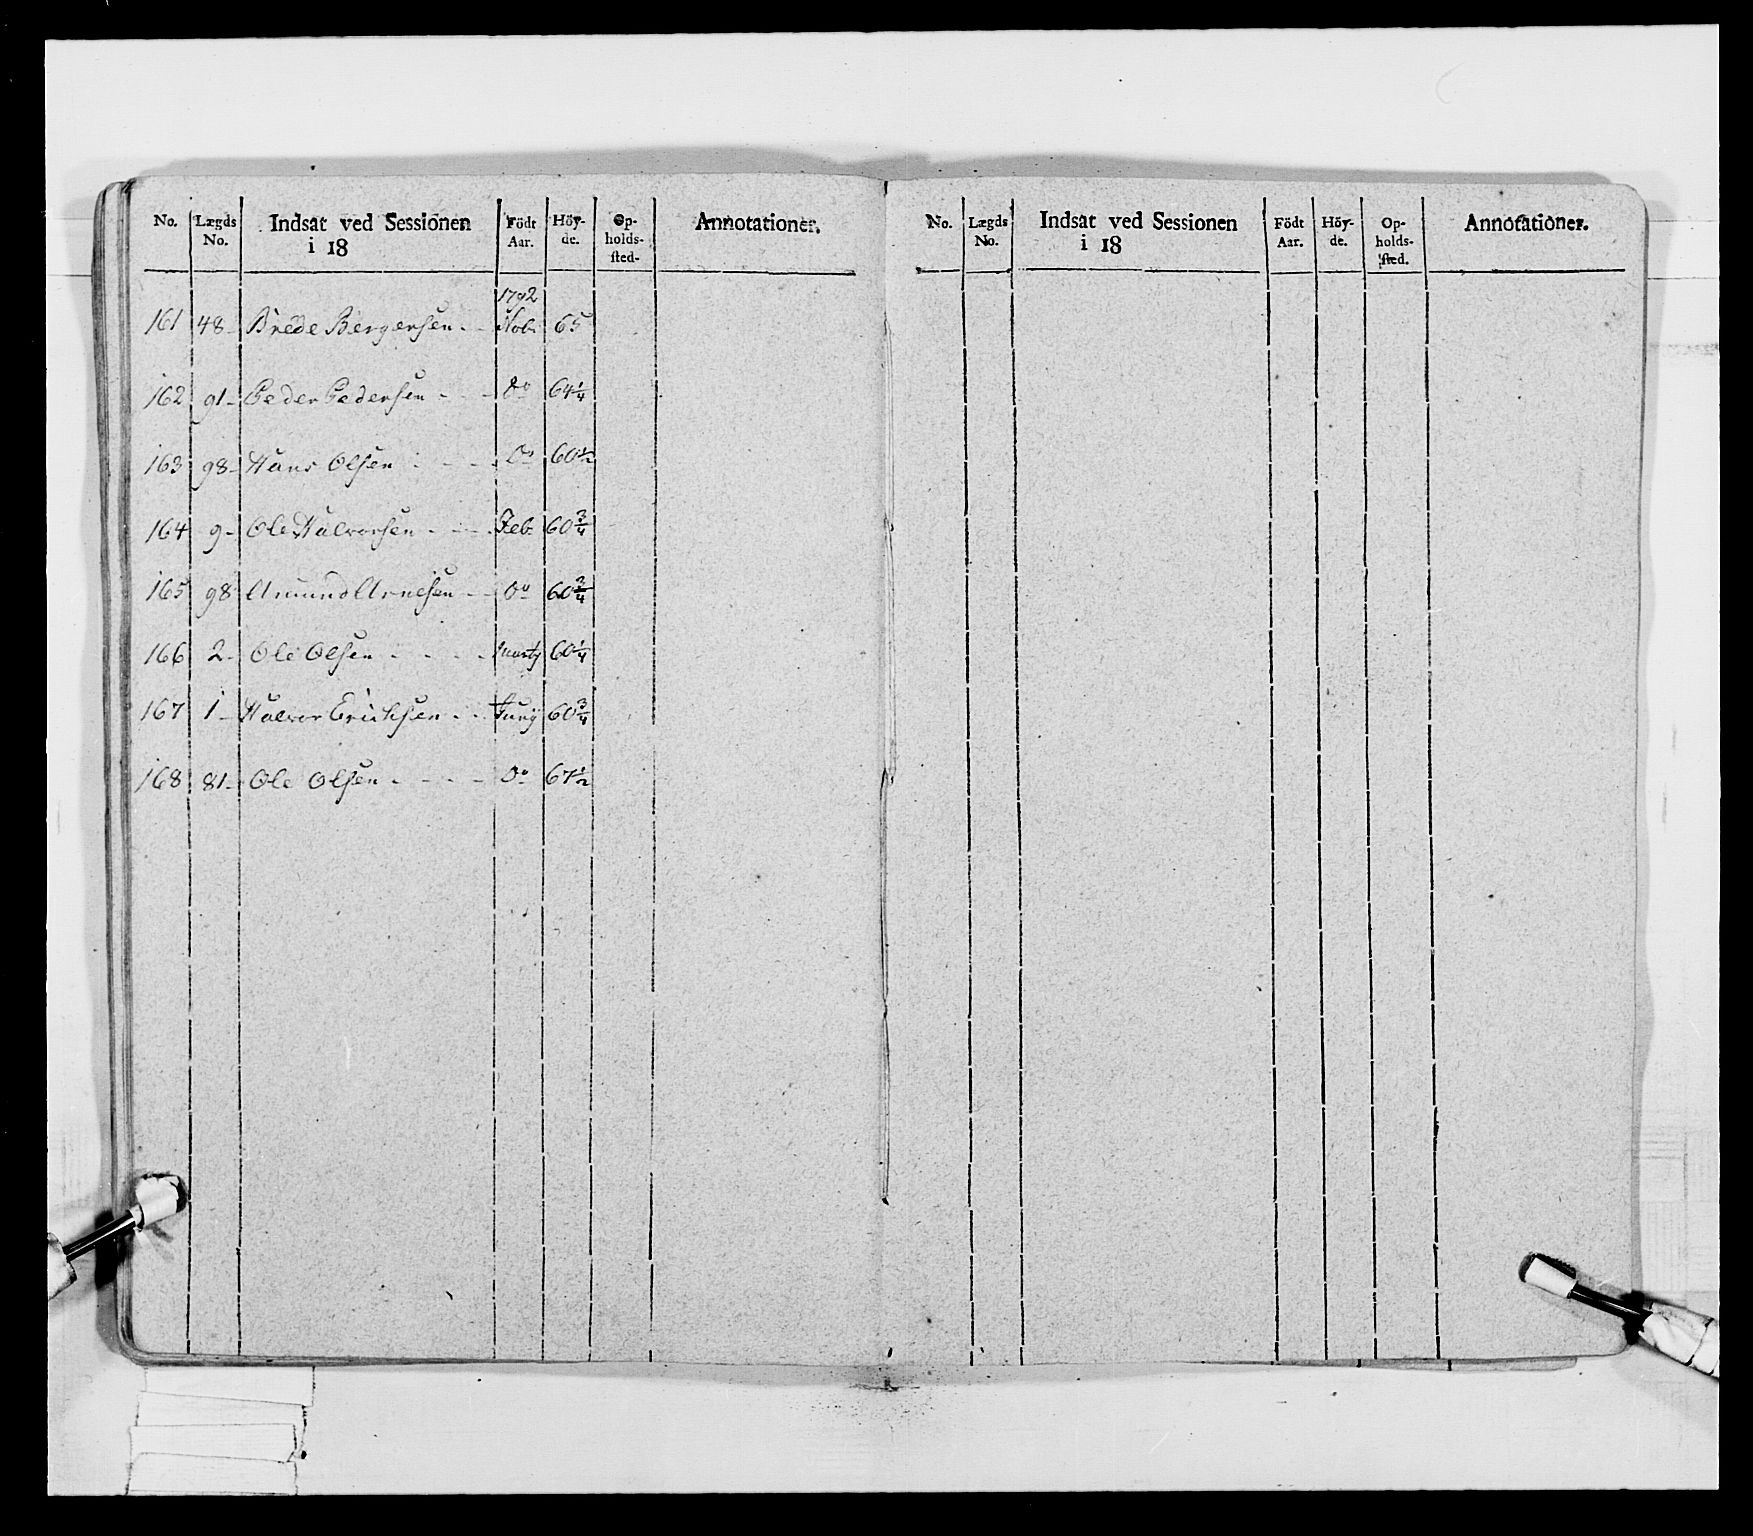 No. Lægds No. Indsat ved Sessionen i 18 Födt Aar. Höy-de. Op-holds-sted- Annotationer.
1792
161 48 Brede Bergersen Nob. 65
162 91 Peder Pedersen do 64 1/4
163 98 Hans Olsen Do 60 1/2
164 9 Ole Halvorsen Feb. 60 3/4
165 98 Amund Arnesen Do 60 3/4
166 2 Ole Olsen Marty 60 1/4
167 1 Halvor Erichsen Juny 60 3/4
168 81 Ole Olsen Do 67 1/2
No. Lægds No. Indsat ved Sessionen i 18 Födt Aar. Höy-de. Op-holds-sted. Annotationer.